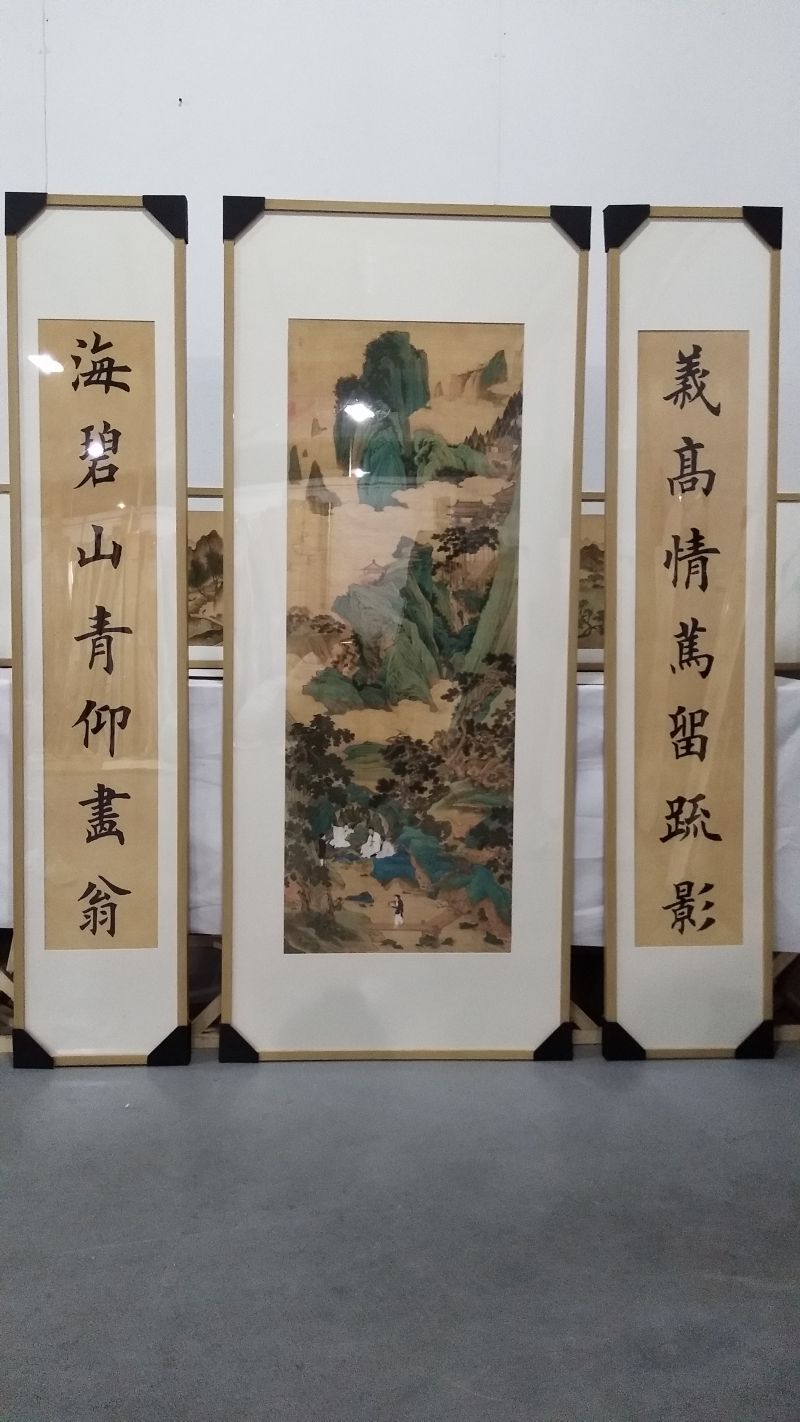 義高情蔦留疏影
海碧山青仰畫翁